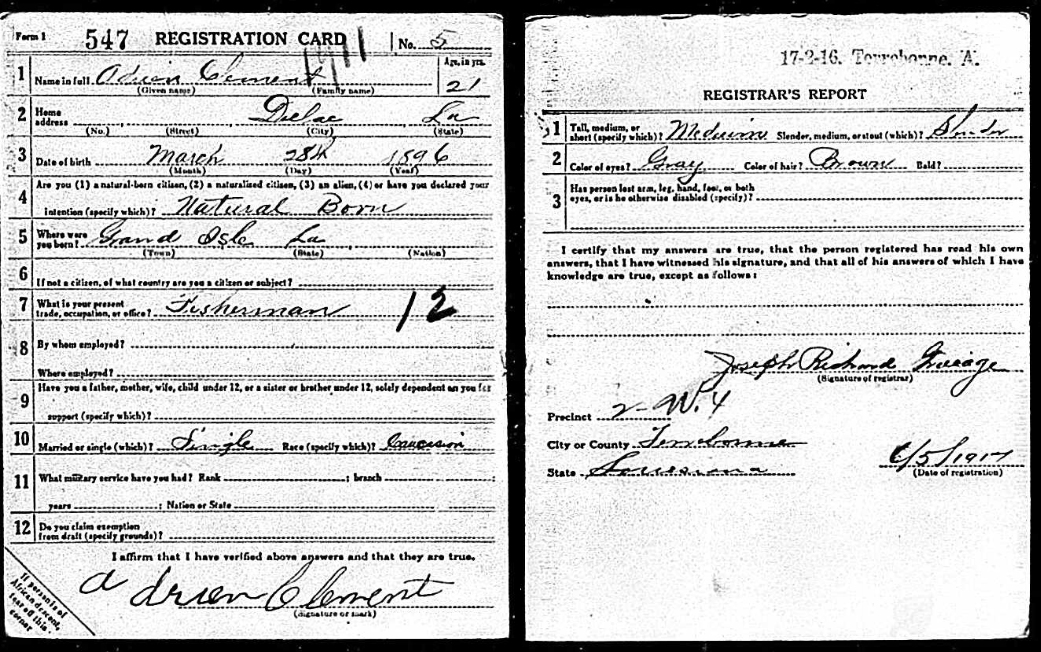 Form 1 547 REGISTRATION CARD No. 5
1 Name in full Adrien Clement Age, in yrs. 21
(Given name) (Family name)
2 Home address Dulac La
(No.) (Street) (City) (State)
3 Date of birth March 28th 1896
(Month) (Day) (Year)
4 Are you (1) a natural-born citizen, (2) a naturalized citizen, (3) an alien, (4) or have you declared your
intention (specify which)? Natural Born
5 Where were you born? Grand Isle La
(Town) (State) (Nation)
6 If not a citizen, of what country are you a citizen or subject?
7 What is your present trade, occupation, or office? Fisherman 12
8 By whom employed?
Where employed?
9 Have you a father, mother, wife, child under 12, or a sister or brother under 12, solely dependent on you for
support (specify which)?
10 Married or single (which)? Single Race (specify which)? Caucasian
11 What military service have you had? Rank ; branch ;
years ; Nation or State
12 Do you claim exemption
from draft (specify grounds)?
I affirm that I have verified above answers and that they are true.
Adrien Clement
(Signature or mark)
If person is of
African descent,
tear off this
corner
17-2-16. Terrebonne. A.
REGISTRAR'S REPORT
1 Tall, medium, or short (specify which)? Medium Slender, medium, or stout (which)? Slender
2 Color of eyes? Gray Color of hair? Brown Bald?
3 Has person lost arm, leg, hand, foot, or both
eyes, or is he otherwise disabled (specify)?
I certify that my answers are true, that the person registered has read his own
answers, that I have witnessed his signature, and that all of his answers of which I have
knowledge are true, except as follows:
Joseph Richard
(Signature of registrar)
Precinct 2-W.4
City or County Terrebonne
State Louisiana 6/5/1917
(Date of registration)